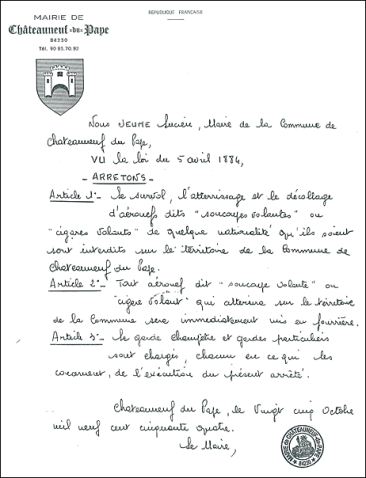 RÉPUBLIQUE FRANÇAISE
MAIRIE DE
Châteauneuf-du-Pape
84230
Tél. 90 83.70.92
Nous JEUNE Lucien, Maire de la Commune de
Chateauneuf du Pape,
VU la loi du 5 avril 1884,
- ARRETONS -
Article 1° - Le survol, l'atterrissage et le décollage
d'aéronefs dits "soucoupes volantes" ou
"cigares volants" de quelque nationalité qu'ils soient
sont interdits sur le territoire de la Commune de
Chateauneuf du Pape.
Article 2° - Tout aéronef dit "soucoupe volante" ou
"cigare volant" qui atterrira sur le territoire
de la Commune sera immédiatement mis en fourrière.
Article 3° - Le garde champêtre et gardes particuliers
sont chargés, chacun en ce qui les
concernent, de l'exécution du présent arrêté.
Chateauneuf du Pape, le Vingt cinq Octobre
mil neuf cent cinquante quatre.
Le Maire,
MAIRIE DE CHATEAUNEUF-DU-PAPE